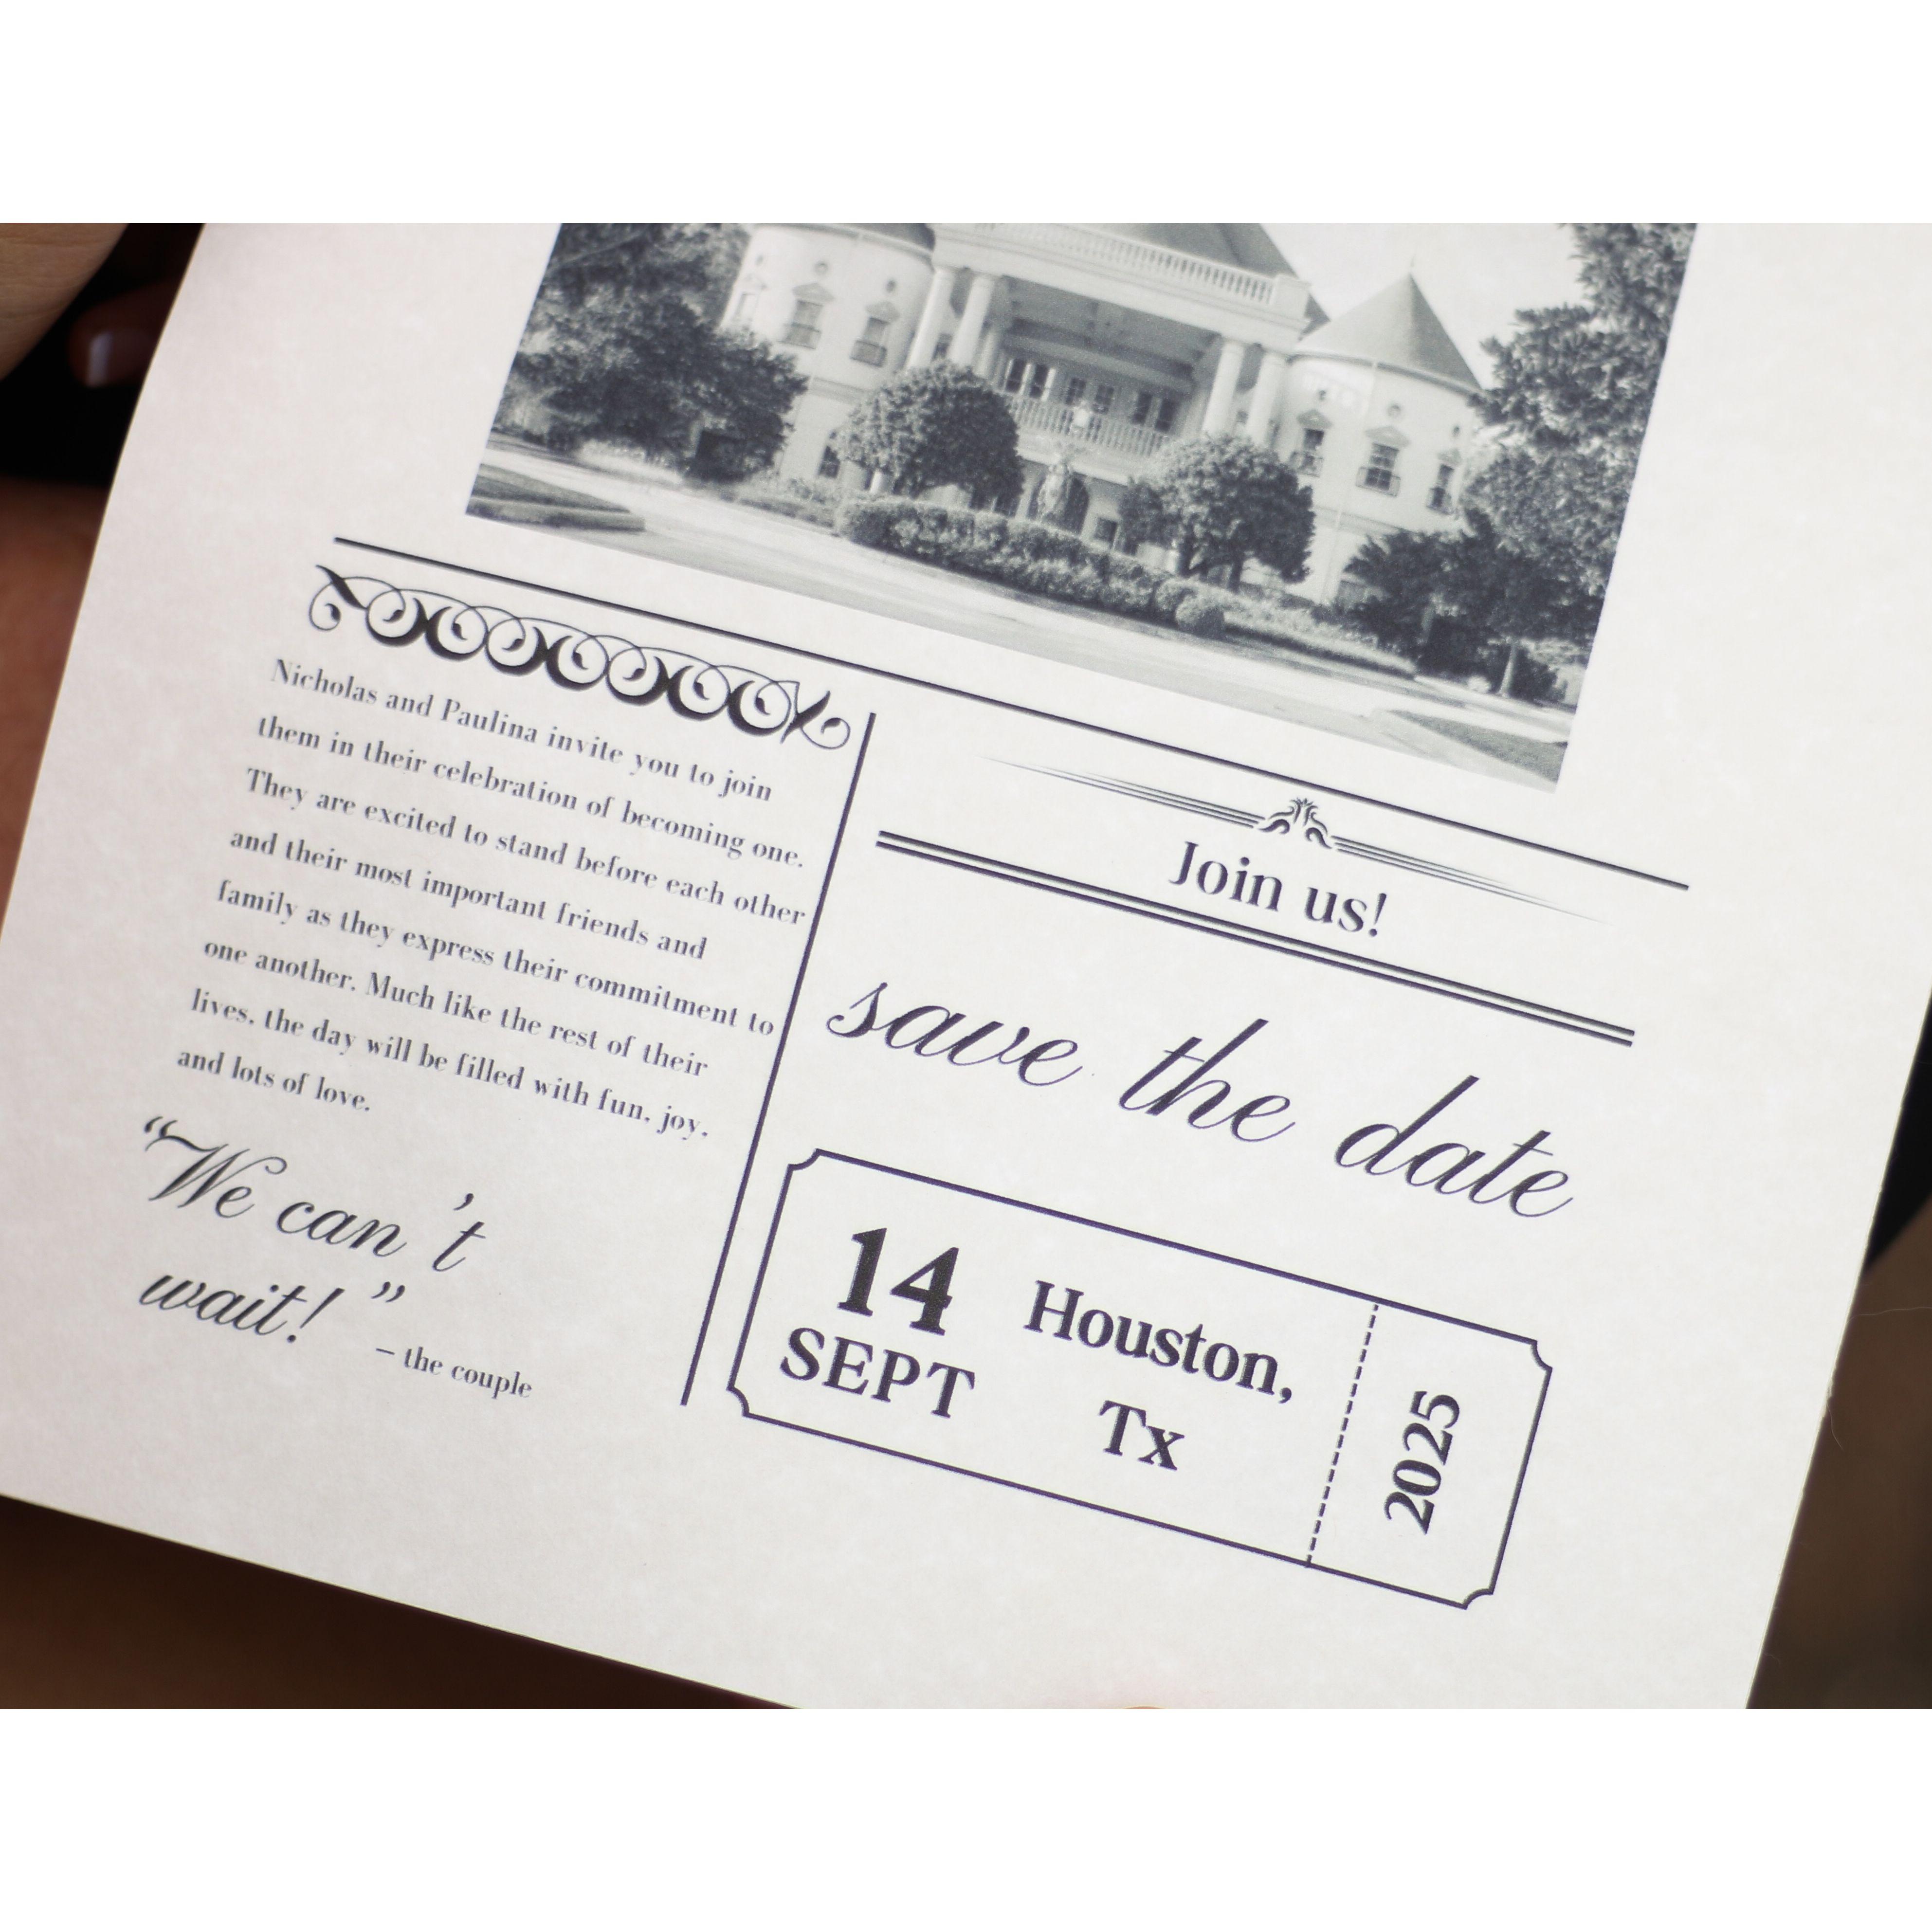 Nicholas and Paulina invite you to join
them in their celebration of becoming one.
They are excited to stand before each other
and their most important friends and
family as they express their commitment to
one another. Much like the rest of their
lives, the day will be filled with fun, joy,
and lots of love.
“We can't
wait!”
– the couple
Join us!
save the date
14
SEPT
Houston,
Tx
2025